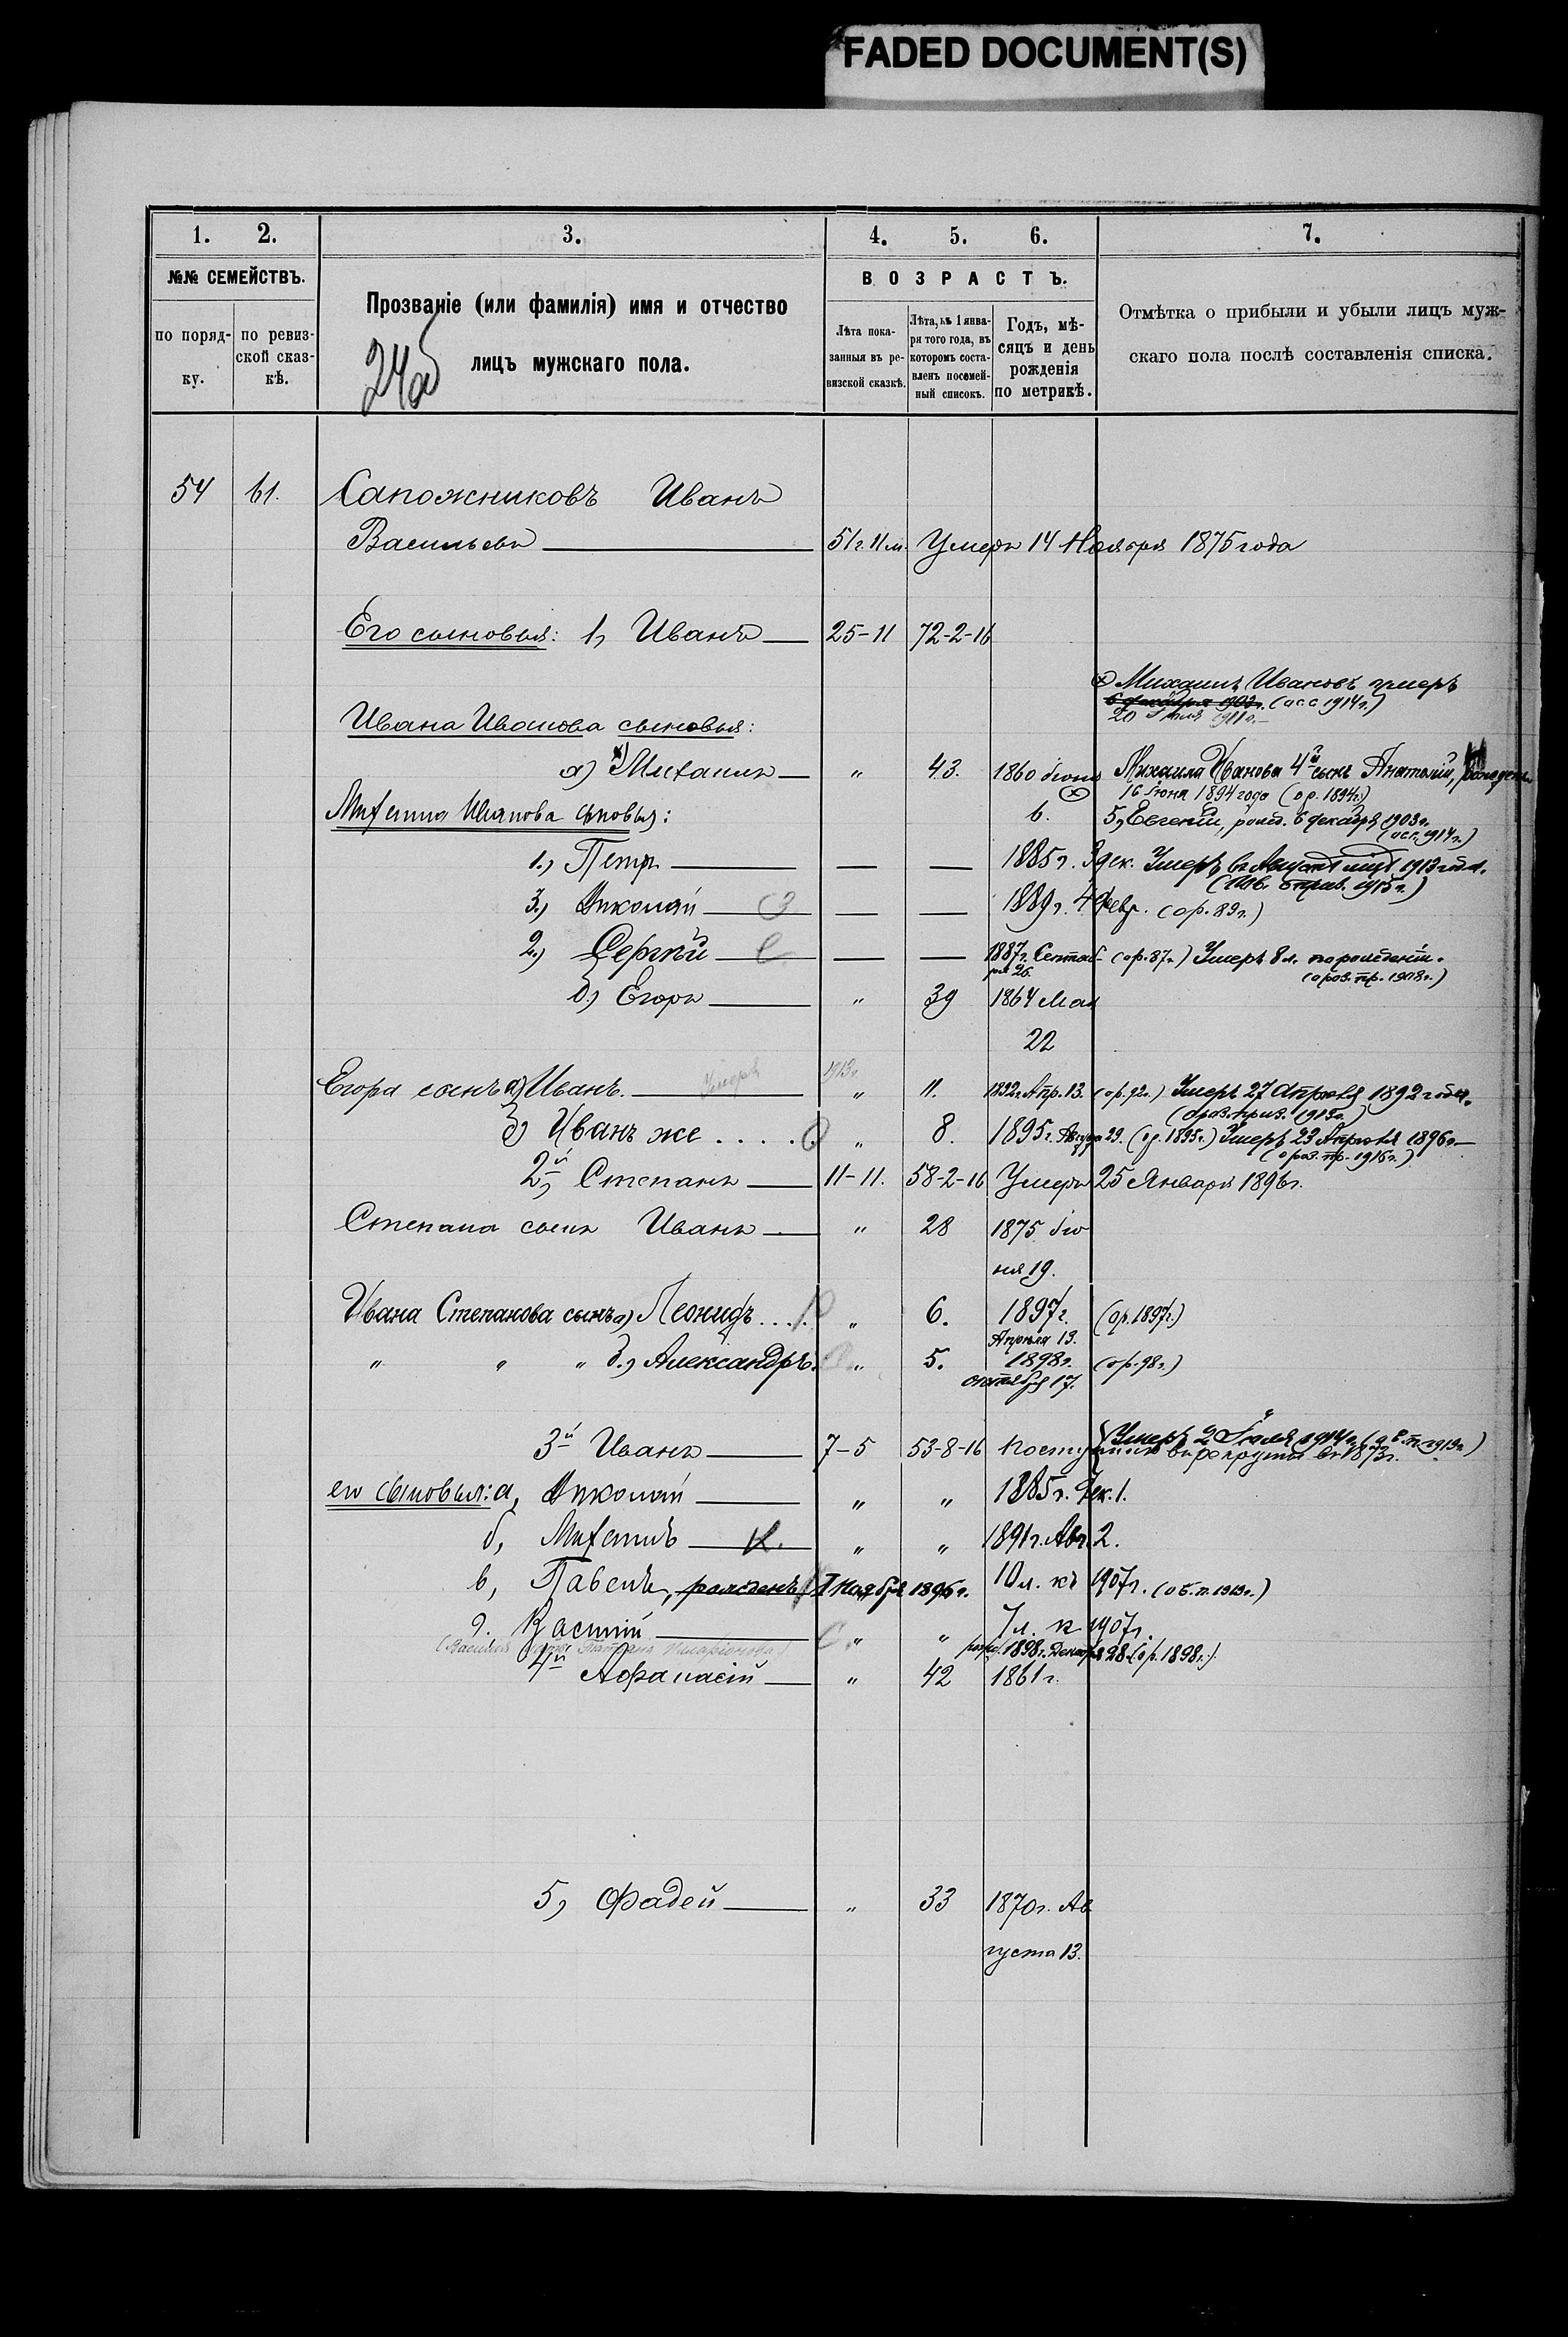 FADED DOCUMENT(S)
1. 2. 3. 4. 5. 6. 7.
№№ СЕМЕЙСТВЪ.
по поряд-
ку.
по ревиз-
ской сказ-
кѣ.
Прозваніе (или фамилія) имя и отчество
лицъ мужскаго пола.
ВОЗРАСТЪ.
Лѣта пока-
занныя въ ре-
визской сказкѣ.
Лѣта, къ 1 янва-
ря того года, въ
которомъ соста-
вленъ посемей-
ный списокъ.
Годъ, мѣ-
сяцъ и день
рожденія
по метрикѣ.
Отмѣтка о прибыли и убыли лицъ муж-
скаго пола послѣ составленія списка.
54 61. Сапожниковъ Иванъ
Васильевъ 51 г. 11 м. Умеръ 14 Ноября 1875 года
Его сыновья: 1, Иванъ 25-11 72-2-16
Михаилъ Ивановъ умеръ
6 декабря 1903 г. (осс 1914 г.)
20 1911 г.
Ивана Иванова сыновья:
а) Михаилъ " 43. 1860 Іюня 6. Михаила Иванова 4й сынъ Анатолій, рожденъ
16 Іюня 1894 года (ор. 1894 г.)
Михаила Иванова сыновья:
5, Евгеній, рожд. 6 декабря 1903 г.
(осс. 1914 г.)
1.) Петръ — — 1885 г. 3 дек. Умеръ въ Августѣ мцѣ 1913 года.
1915 г.)
3.) Николай — — 1889 г. 4 Февр. (ор. 89 г.)
2.) Сергѣй — — 1887 г. Сентяб-
ря 26. (ор. 87 г.) Умеръ 8 л. по рожденіи.
(ороз. пр. 1908 г.)
б) Егоръ " 39 1864 Мая
22
Егора сынъ а) Иванъ. Умеръ 1913 г. " 11. 1892 г. Апр. 13. (ор. 92 г.) Умеръ 27 Апрѣля 1892 года.
(ороз. приз. 1913 г.)
б) Иванъ же . . . . " 8. 1895 г. Августа 29. (ор. 1895 г.) Умеръ 23 Апрѣля 1896 г.
(ороз. пр. 1916 г.)
2й, Степанъ 11-11. 58-2-16 Умеръ 25 Января 1896 г.
Степана сынъ Иванъ " 28 1875 Ію
ня 19.
Ивана Степанова сынъ а) Леонидъ . . . " 6. 1897 г.
Апрѣля 13. (ор. 1897 г.)
" " " б.) Александръ. " 5. 1898 г.
октября 17. (ор. 98 г.)
Умеръ 2 Іюля 1914 г. 1913 г.)
3й Иванъ 7-5 53-8-16 поступилъ въ рекруты въ 1873 г.
его сыновья: а, Николай " " 1885 г. Дек. 1.
б, Михаилъ " " 1891 г. Авг. 2.
в, Павелъ, рожденъ Ноября 1896 г. 10 л. къ 1907 г. (об. п. 1919 г.)
г. Василій " " 7 л. к 1907 г.
рожд. 1898 г. Декабря 28 (ор. 1898 г.)
4й Афанасій " 42 1861 г.
5, Фадей " 33 1870 г. Ав
густа 13.